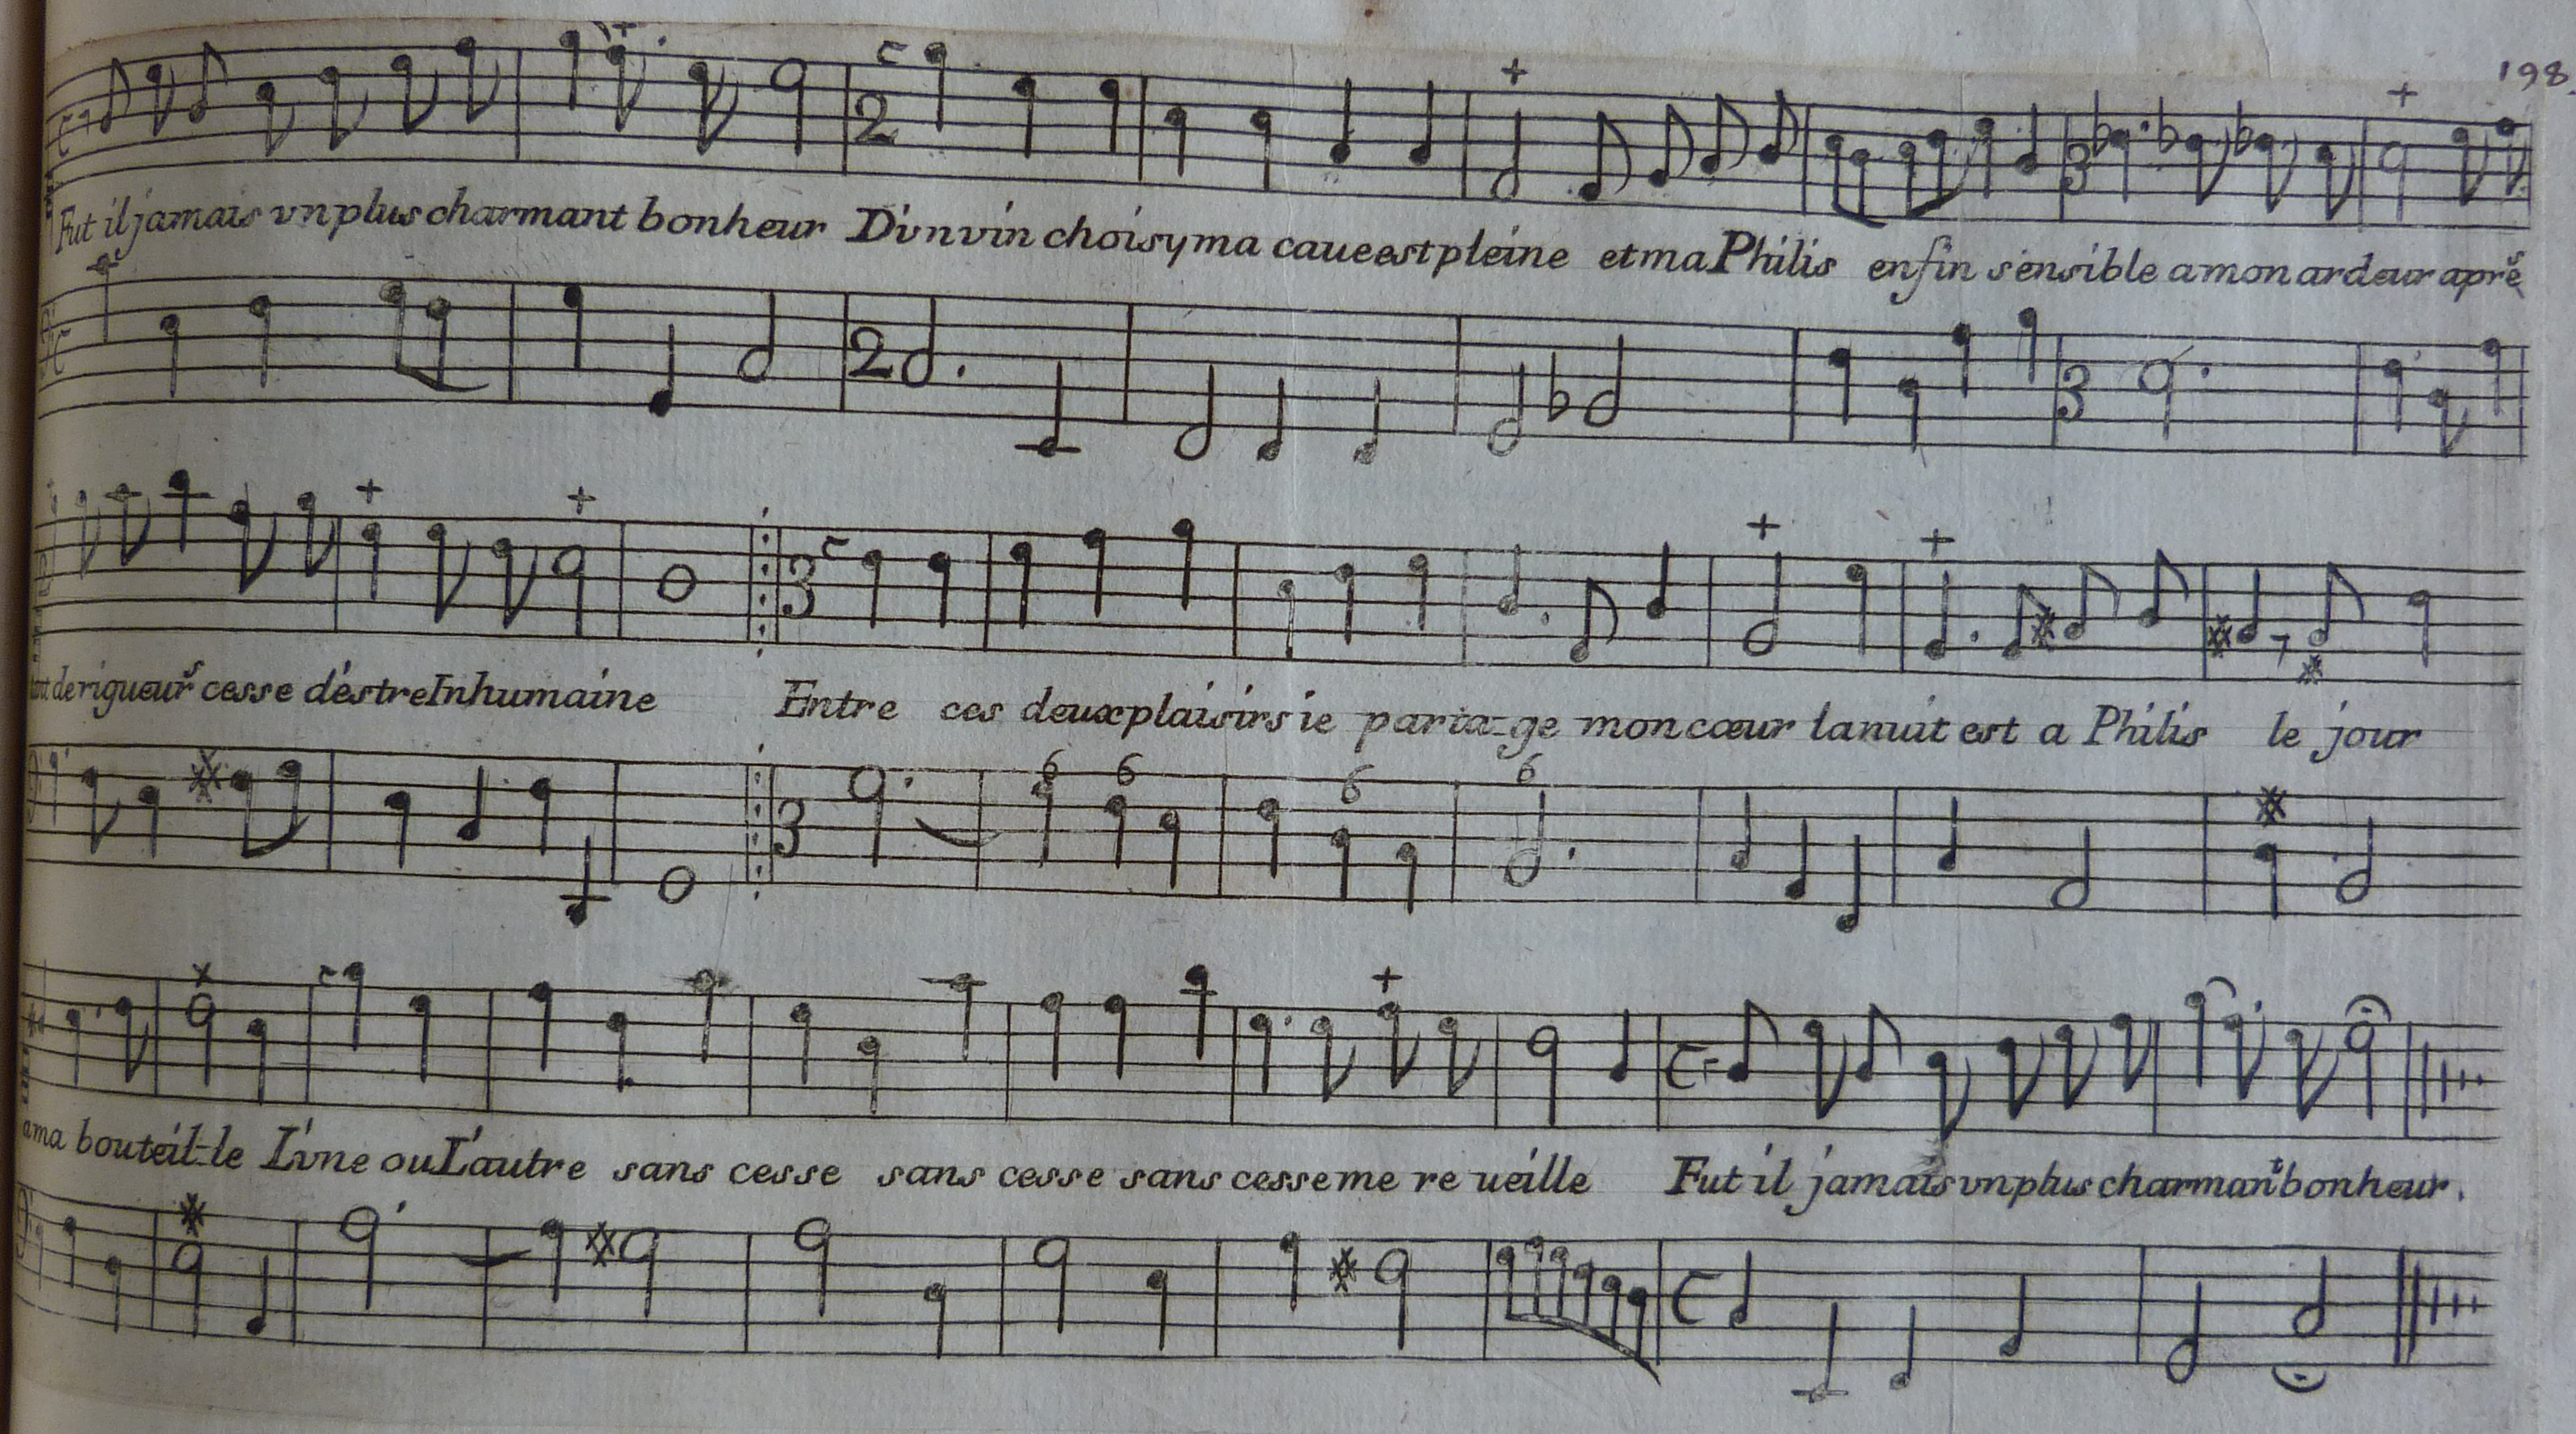 198.
Fut il jamais vn plus charmant bonheur D'vn vin choisy ma caue est pleine et ma Philis enfin sensible a mon ardeur aprés
tant de rigueurs cesse d'éstre Inhumaine Entre ces deux plaisirs ie parta-ge mon cœur la nuit est a Philis le jour
a ma bouteil-le L'vne ou L'autre sans cesse sans cesse sans cesse me re ueille Fut il jamais vn plus charmant bonheur.